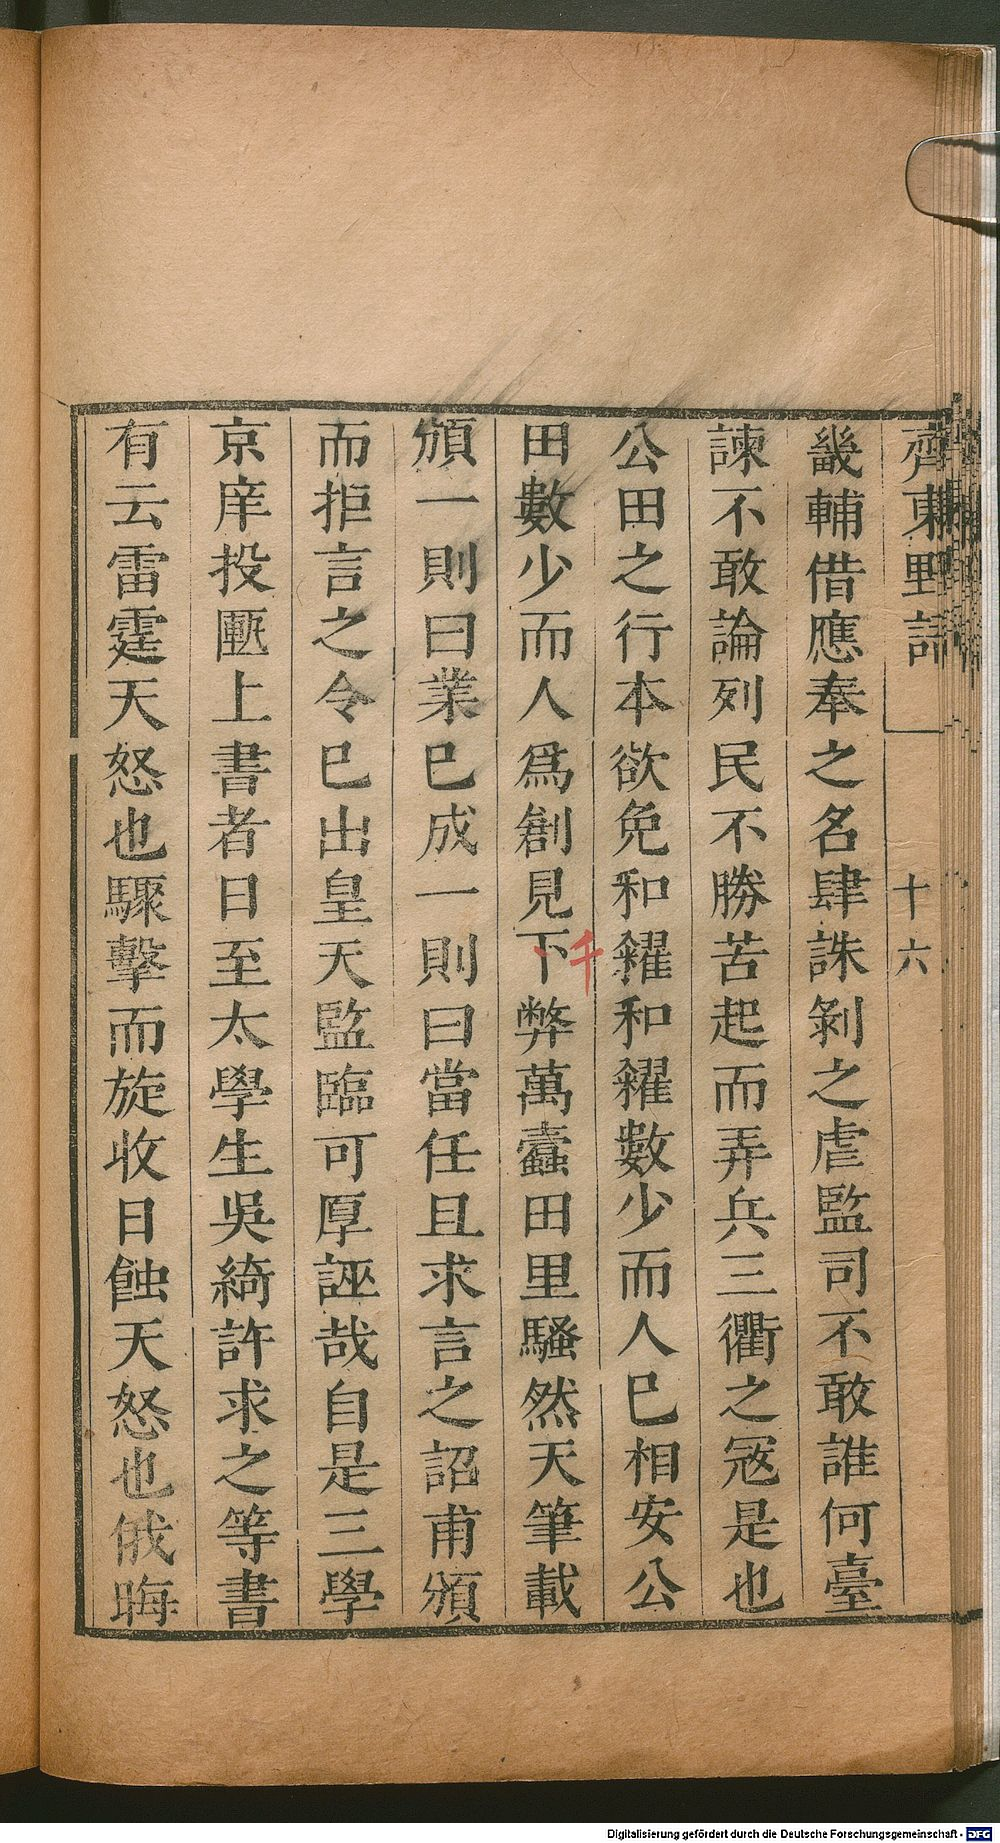 齊東野語
十六
畿輔借應奉之名肆誅剝之虐監司不敢誰何臺
諫不敢論列民不勝苦起而弄兵三衢之冦是也
公田之行本欲免和糴和糴數少而人已相安公
田數少而人爲創見下弊萬蠹田里騷然天筆載
千
頒一則曰業已成一則曰當任且求言之詔甫頒
而拒言之令已出皇天監臨可厚誣哉自是三學
京庠投匭上書者日至太學生吳綺許求之等書
有云雷霆天怒也驟擊而旋收日蝕天怒也俄晦
Digitalisierung gefördert durch die Deutsche Forschungsgemeinschaft - DFG